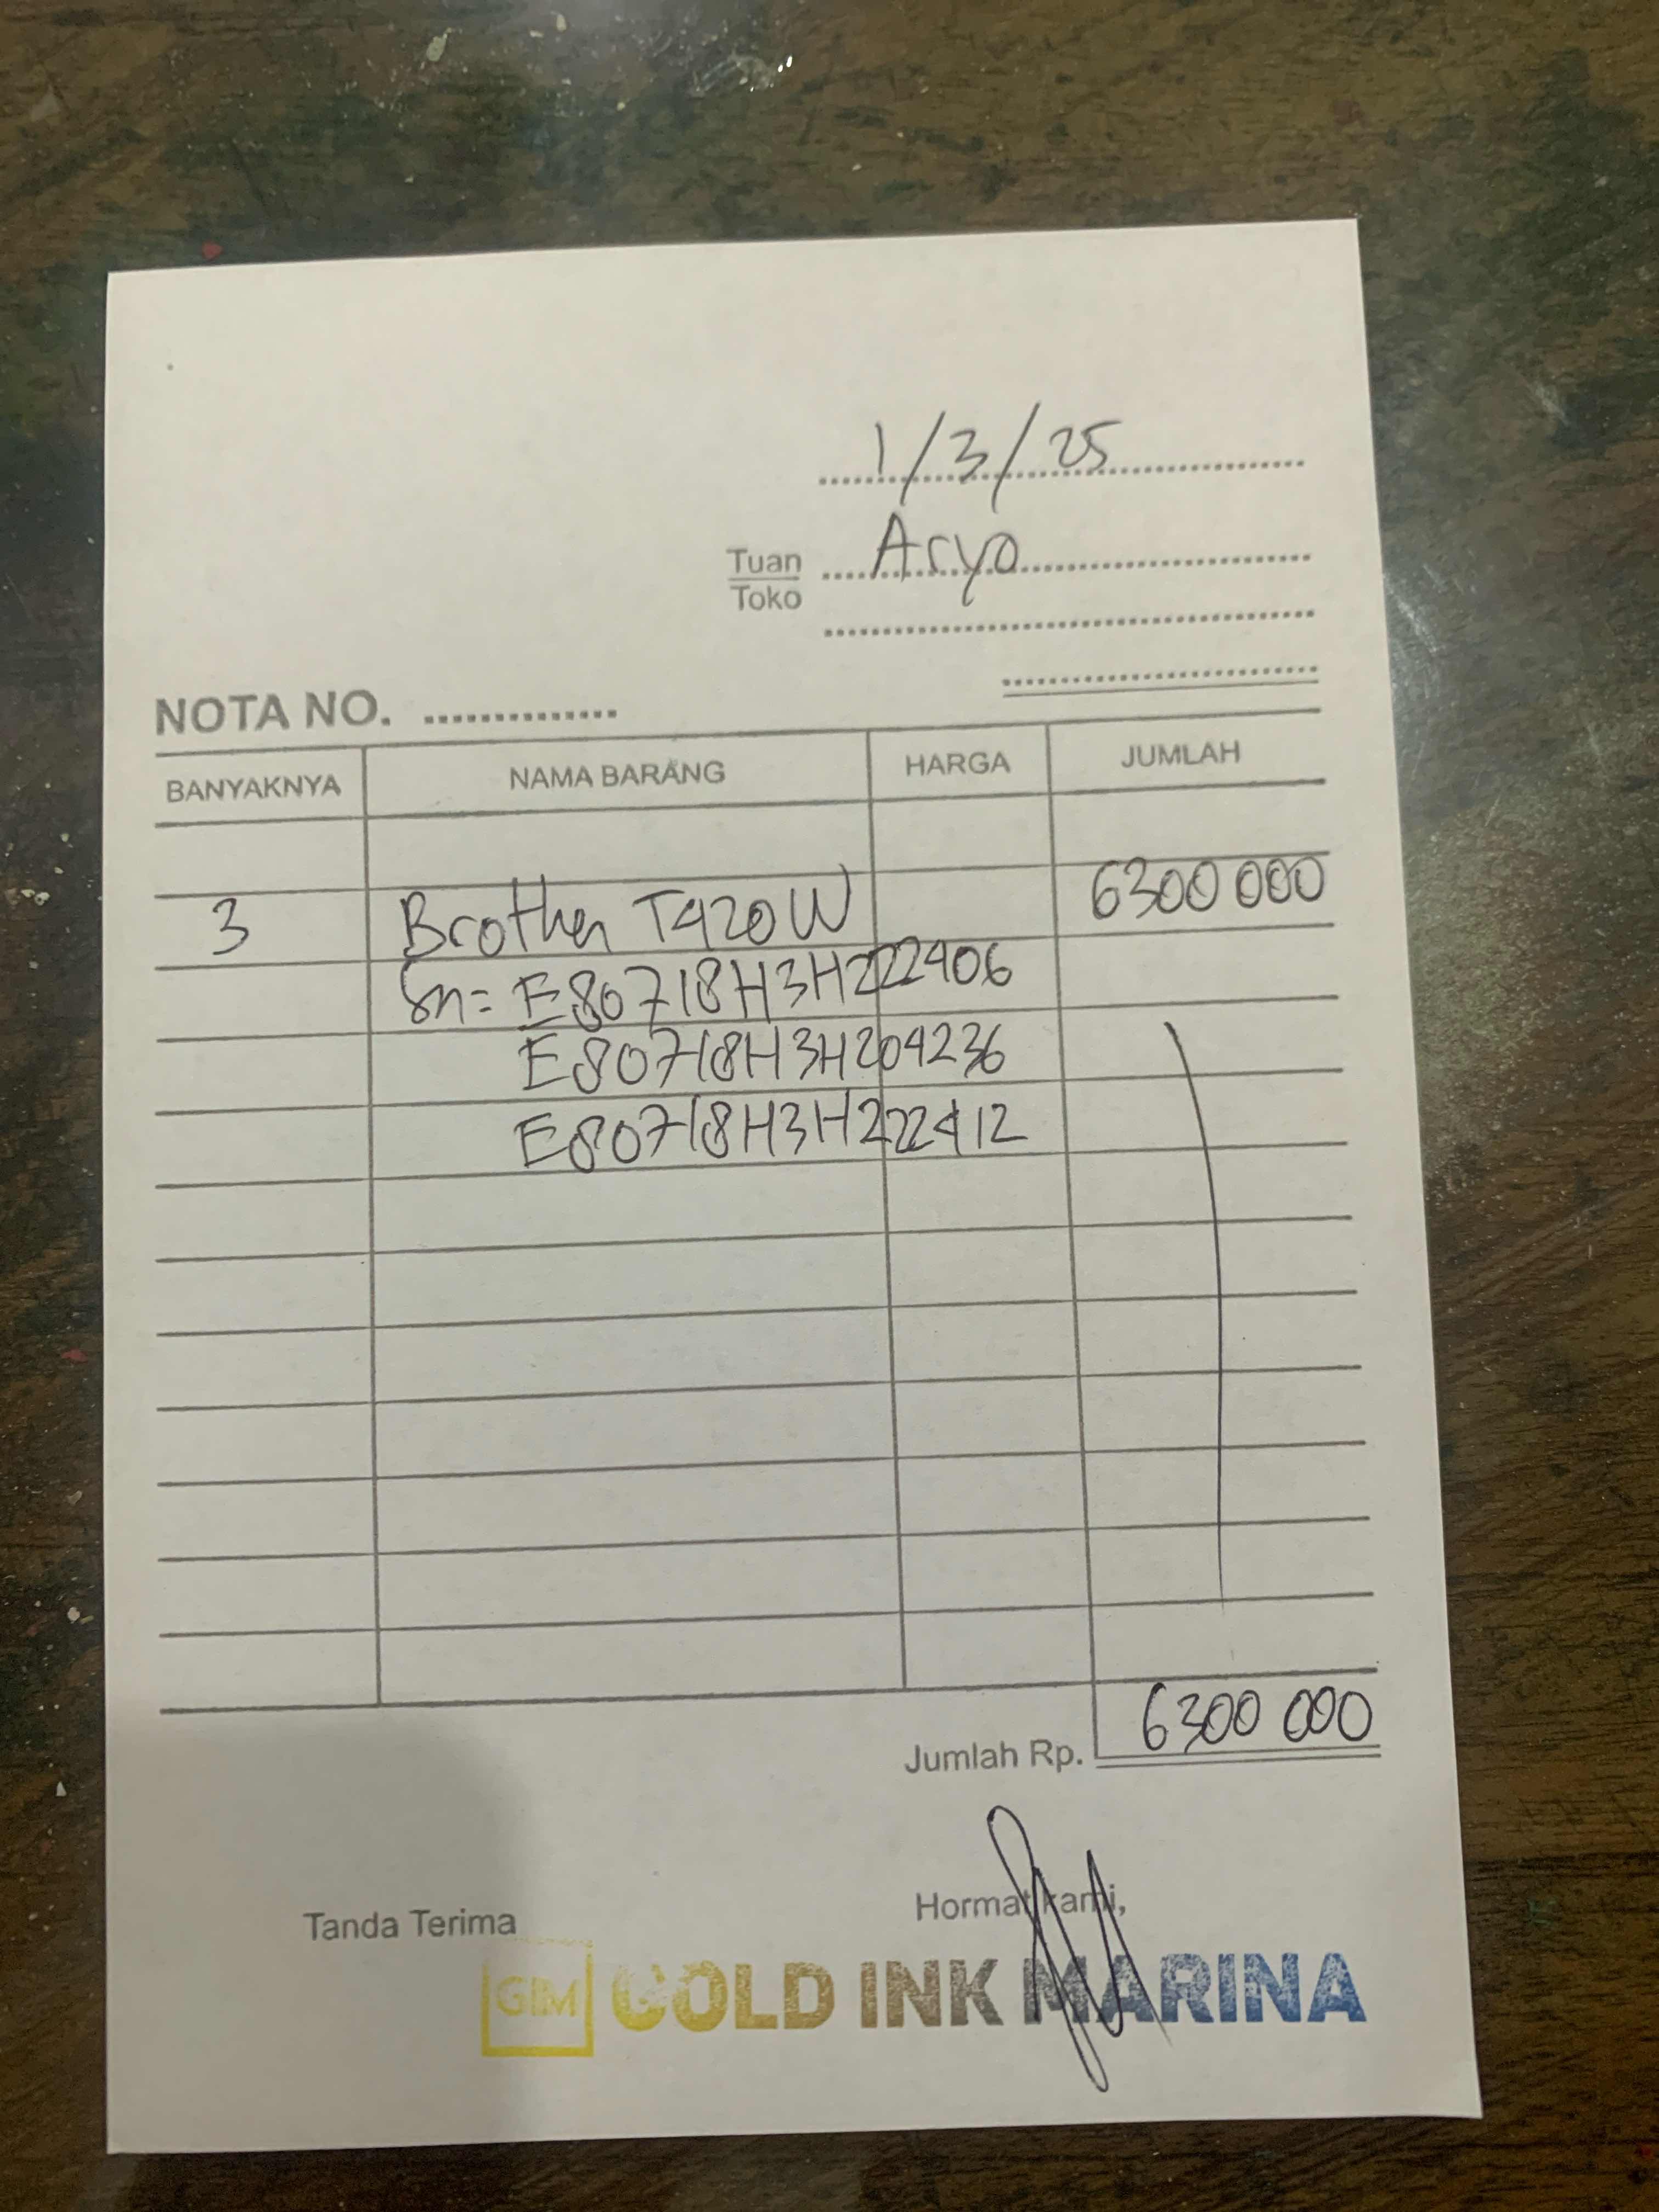 1/3/25
Tuan Aryo
Toko
NOTA NO.
BANYAKNYA NAMA BARANG HARGA JUMLAH
3 Brother T420W 6300 000
Sn = E80718H3H222406
E80718H3H204236
E80718H3H222412
Jumlah Rp. 6300 000
Tanda Terima Hormat kami,
GIM GOLD INK MARINA